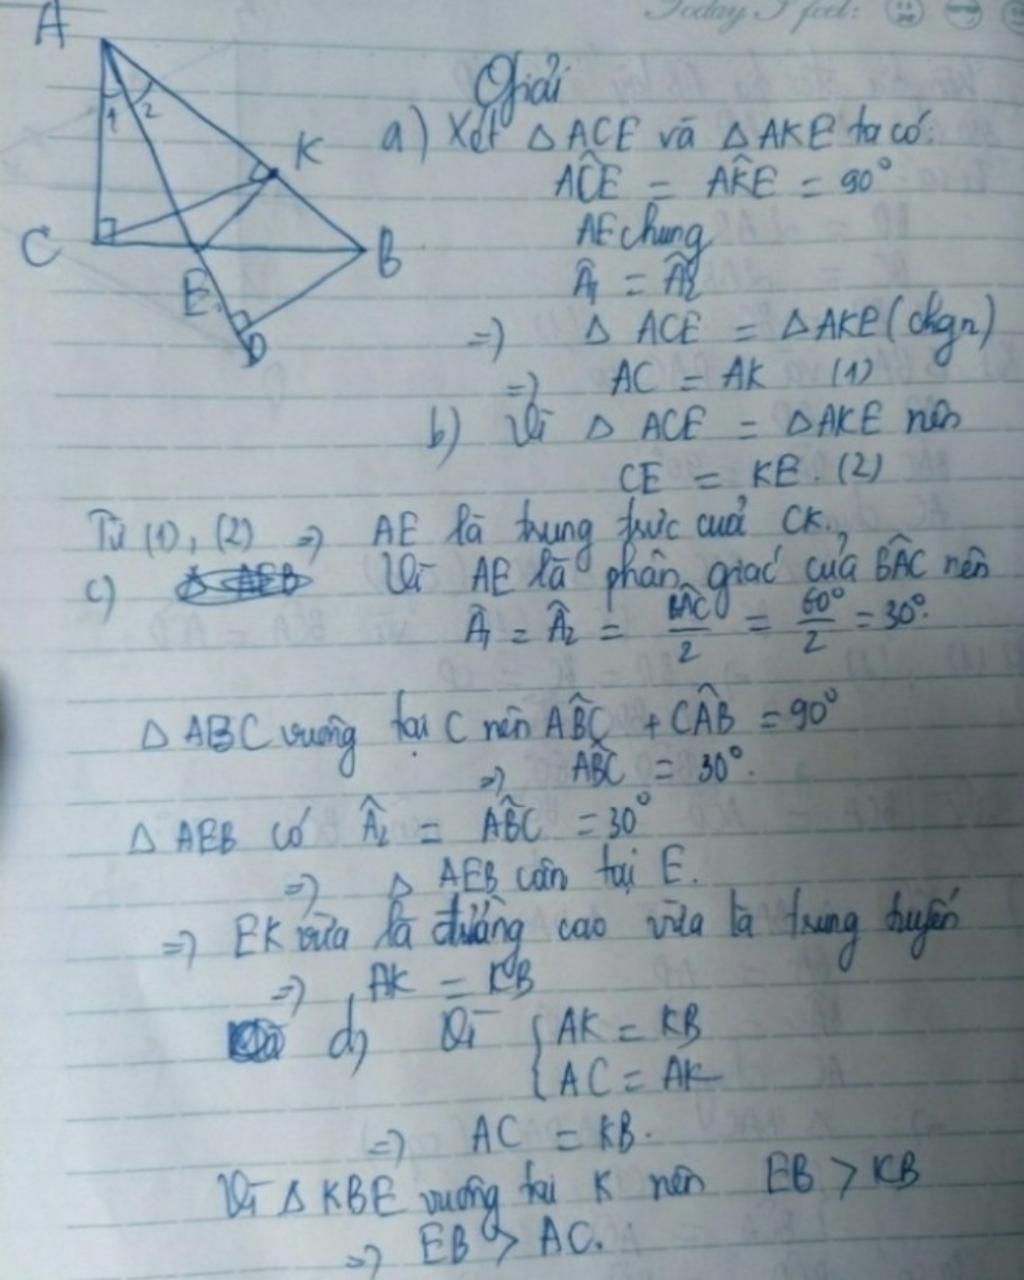 Today I feel:
A
1 2
K
C
B
E
D
Giải
a) Xét △ ACE và △ AKE ta có:
AĈE = AK̂E = 90°
AE chung
Â₁ = Â₂
=> △ ACE = △ AKE (chgn)
=> AC = AK (1)
b) Vì △ ACE = △ AKE nên
CE = KE. (2)
Từ (1), (2) => AE là trung trực cuả CK.
c) Vì AE là phân giác của BÂC nên
Â₁ = Â₂ = BÂC/2 = 60°/2 = 30°.
△ ABC vuông tại C nên AB̂C + CÂB = 90°
=> AB̂C = 30°.
△ AEB có Â₂ = AB̂C = 30°
=> △ AEB cân tại E.
=> EK vừa là đường cao vừa là trung tuyến
=> AK = KB
d) Vì { AK = KB
AC = AK
=> AC = KB.
Vì △ KBE vuông tại K nên EB > KB
=> EB > AC.